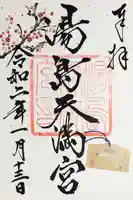 奉拝
湯島天満宮
令和二年一月三日